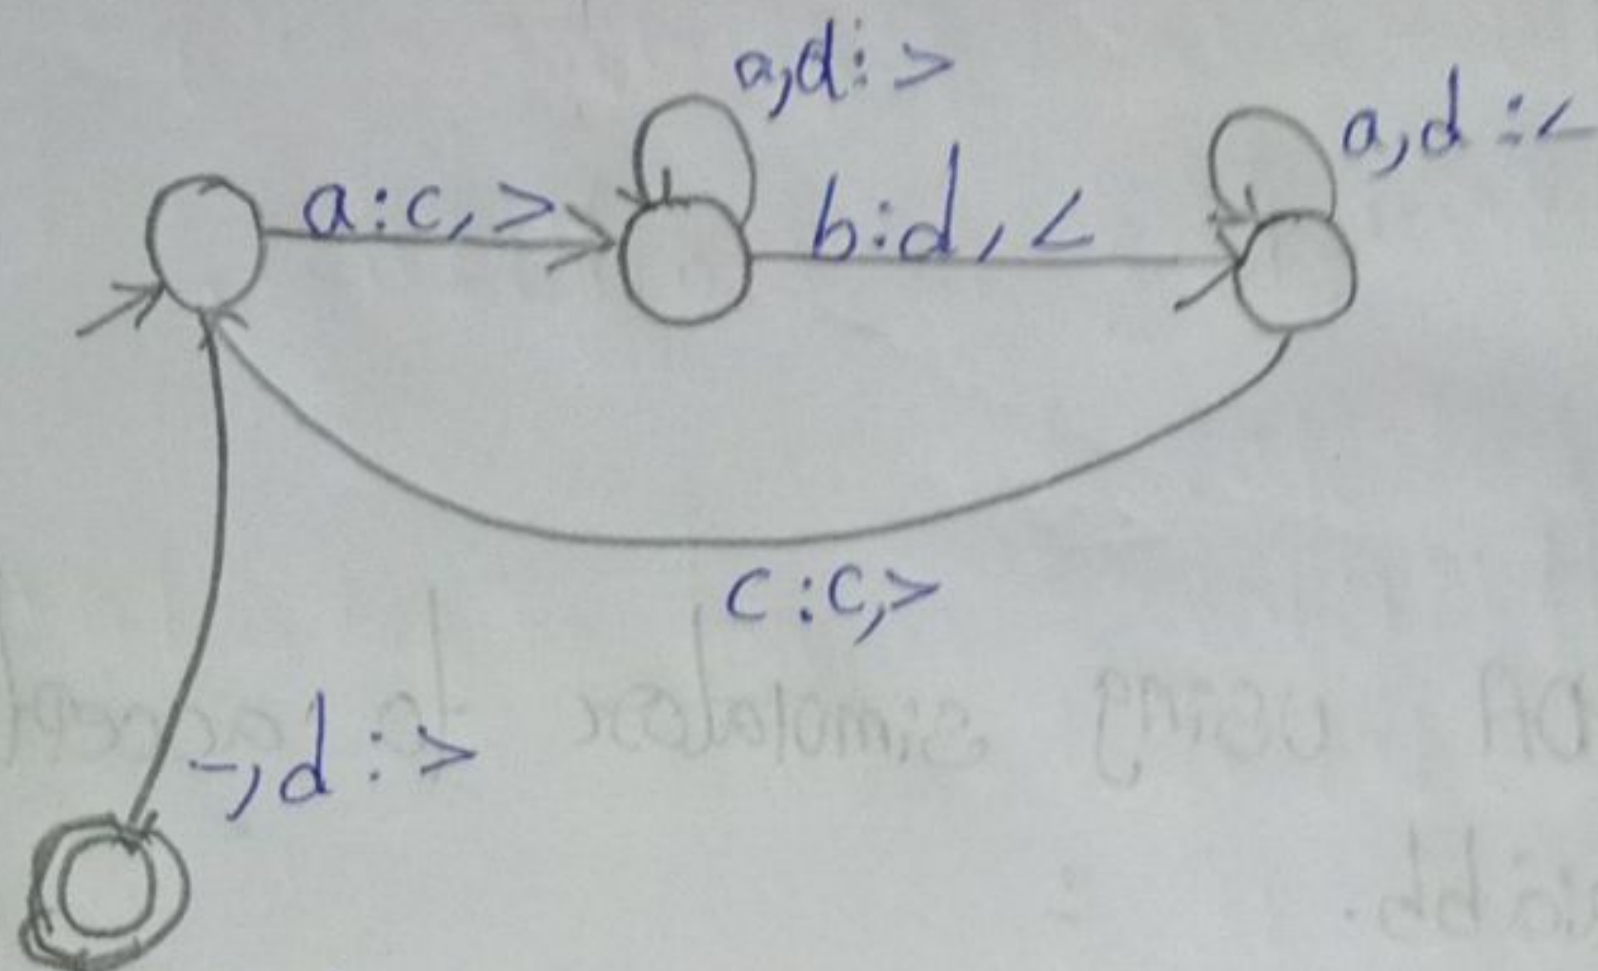 a,d:>
a,d:<
a:c,>
b:d,<
c:c,>
-,d:>